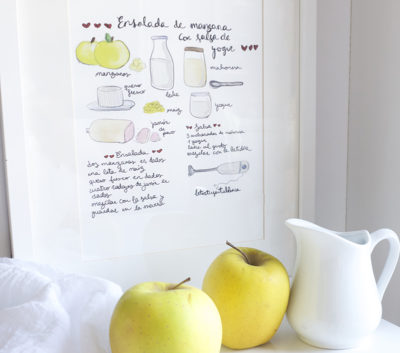 Ensalada de manzana
con salsa de
yogur
manzanas
leche
mahonesa
queso
fresco
maíz
yogur
jamón
de
pavo
Ensalada
Dos manzanas en trozos
una lata de maíz
queso fresco en dados
cuatro
dados
mezclar con la salsa y
guardar en la nevera
Salsa
3 cucharadas de mahonesa
1 yogur
leche al gusto
mezclar con la batidora